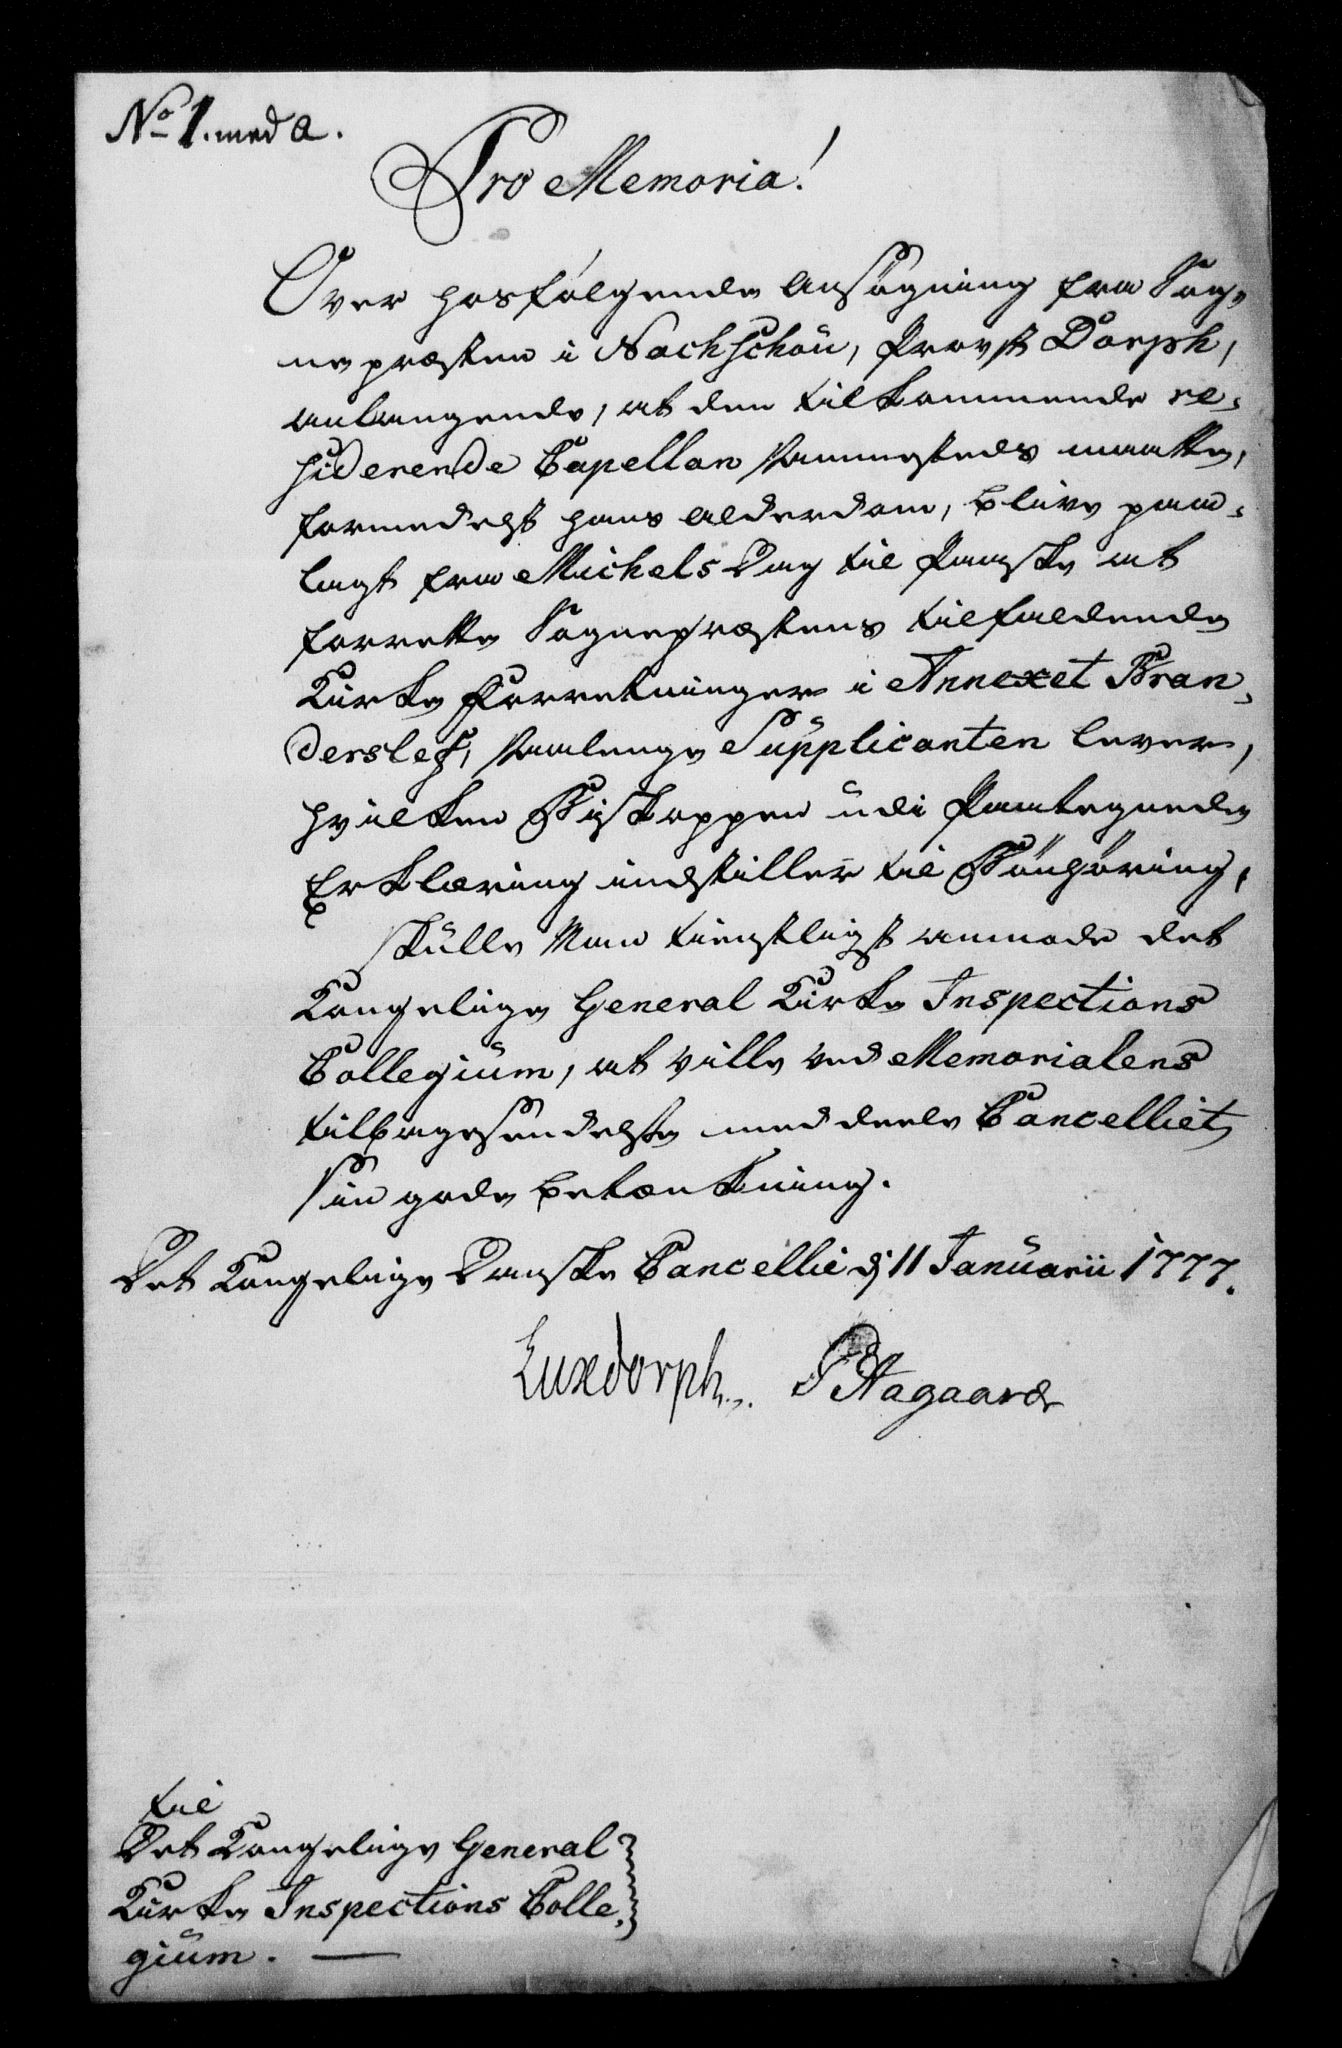 No 1. med a.
Pro Memoria!
Over hosfølgende Ansøgning fra Sog-
nepræsten i Nachschou, Provst Dorph,
anlangende, at den tilkommende re-
siderende Capellan sammesteds maatte,
formedelst hans Alderdom, blive paa-
lagt fra Michels Dag til Paaske at
forrette Sognepræstens tilfaldende
Kirke Forretninger i Annexet Bran-
derslef, saalenge Supplicanten lever,
hvilken Biskoppen udi Paategnede
Erklæring indstiller til Bönhöring,
skulle Man tienstligst anmode det
Kongelige General Kirke Inspections
Collegium, at ville ved Memorialens
tilbagesendelse meddeele Cancelliet
sin gode betænkning.
Det Kongelige Danske Cancellie d 11 Januarii 1777.
Luxdorph. P Aagaard
til
Det Kongelige General
Kirke Inspections Colle-
gium.